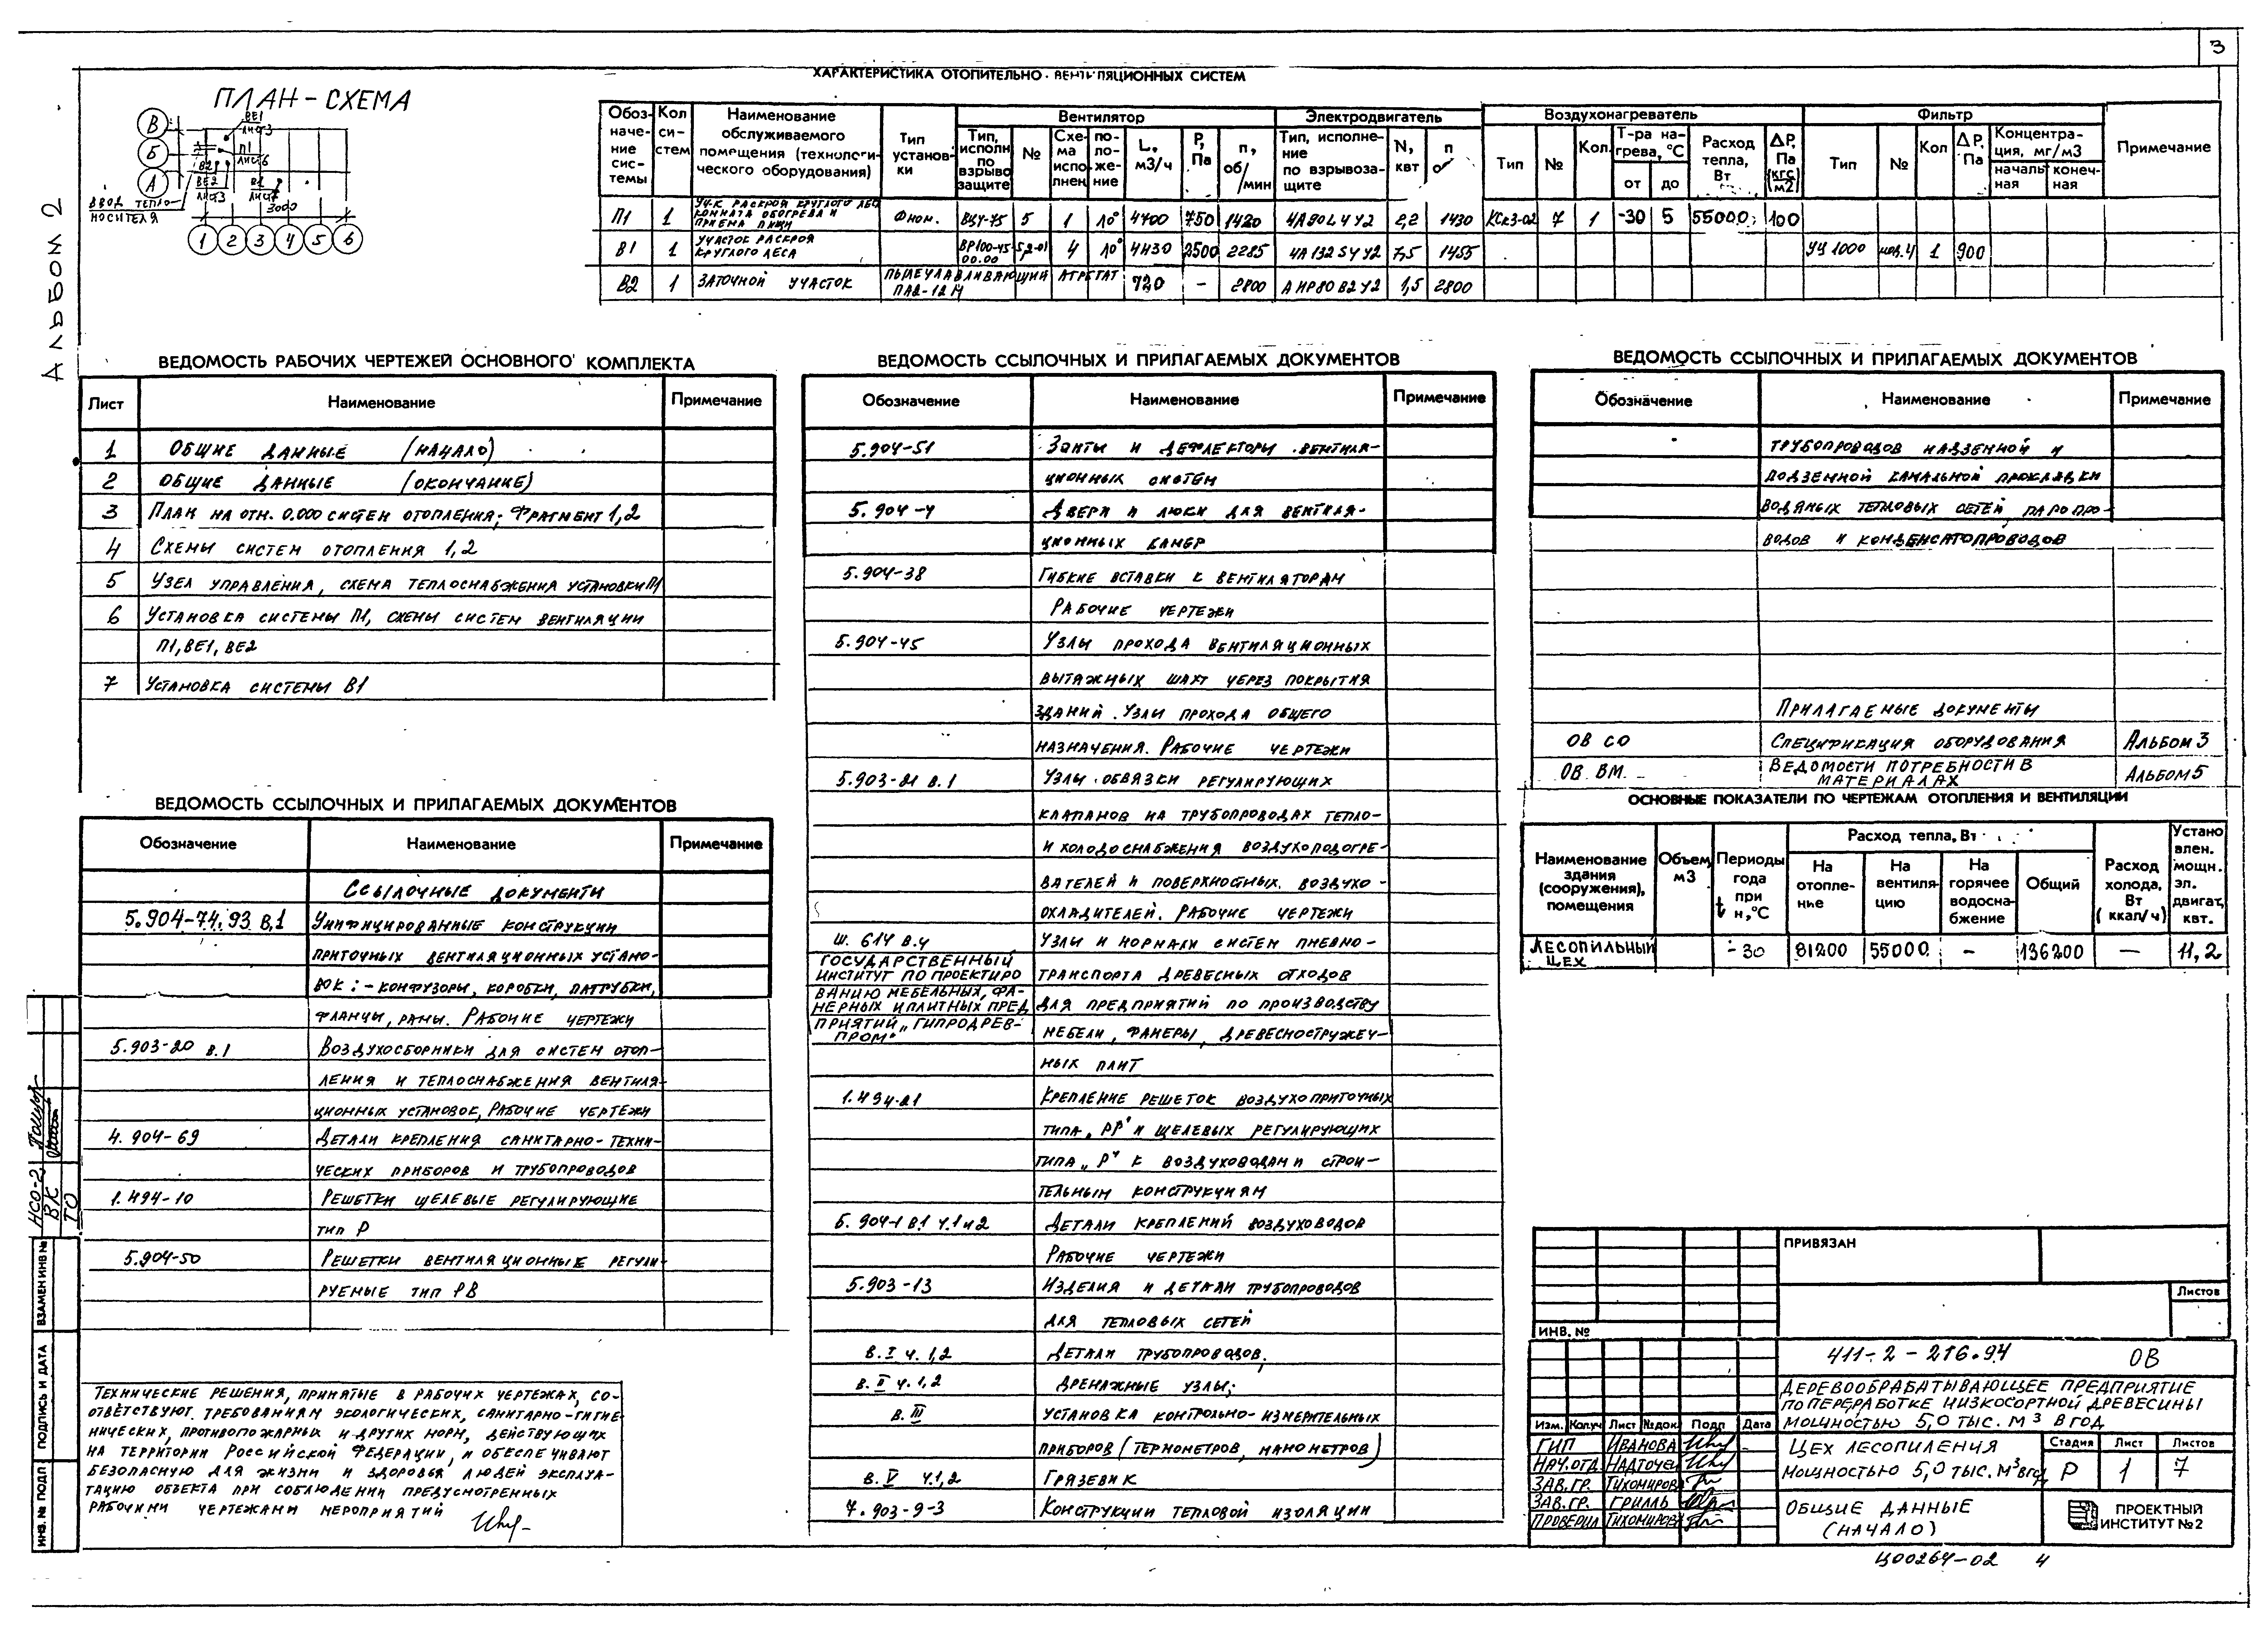 3
АЛЬБОМ 2
ПЛАН-СХЕМА
В
Б
А
ВЕ1
ЛИСТ 3
П1
ЛИСТ 6
В2
ВЕ2
ЛИСТ 3
В1
ЛИСТ 7
3000
ВВОД ТЕПЛО-
НОСИТЕЛЯ
1 2 3 4 5 6
ХАРАКТЕРИСТИКА ОТОПИТЕЛЬНО-ВЕНТИЛЯЦИОННЫХ СИСТЕМ
Обоз-
наче-
ние
сис-
темы
Кол
си-
стем
Наименование
обслуживаемого
помещения (технологи-
ческого оборудования)
Тип
установ-
ки
Вентилятор
Тип,
исполн
по
взрыво
защите
№
Схе-
ма
испо-
лнен
по-
ло-
же-
ние
L,
м3/ч
P,
Па
п,
об/
мин
Электродвигатель
Тип, исполне-
ние
по взрывоза-
щите
N,
квт
п
Воздухонагреватель
Тип
№
Кол
Т-ра на-
грева, °С
от
до
Расход
тепла,
Вт
ΔP,
Па
(кгс/
м2)
Фильтр
Тип
№
Кол
ΔP,
Па
Концентра-
ция, мг/м3
началь-
ная
конеч-
ная
Примечание
П1 1 УЧ-К РАСКРОЯ КРУГЛОГО ЛЕСА
КОМНАТА ОБОГРЕВА И
ПРИЕМА ПИЩИ
ФНОМ. ВЦ4-75 5 1 Л0° 4400 750 1420 4А90L4У2 2,2 1430 КСк3-02 7 1 -30 5 55000 100
В1 1 УЧАСТОК РАСКРОЯ
КРУГЛОГО ЛЕСА
ВР100-45
00.00
4 Л0° 4430 2500 2285 4А132S4У2 7,5 1455 УЦ 1000 1 900
В2 1 ЗАТОЧНОЙ УЧАСТОК ПЫЛЕУЛАВЛИВАЮЩИЙ АГРЕГАТ
ПА2-12М
720 - 2800 АИР80В2У2 1,5 2800
ВЕДОМОСТЬ РАБОЧИХ ЧЕРТЕЖЕЙ ОСНОВНОГО КОМПЛЕКТА
Лист Наименование Примечание
1 ОБЩИЕ ДАННЫЕ (НАЧАЛО)
2 ОБЩИЕ ДАННЫЕ (ОКОНЧАНИЕ)
3 ПЛАН НА ОТМ. 0.000 СИСТЕМ ОТОПЛЕНИЯ; ФРАГМЕНТ 1,2
4 СХЕМЫ СИСТЕМ ОТОПЛЕНИЯ 1,2
5 УЗЕЛ УПРАВЛЕНИЯ, СХЕМА ТЕПЛОСНАБЖЕНИЯ УСТАНОВКИ П1
6 УСТАНОВКА СИСТЕМЫ П1, СХЕМЫ СИСТЕМ ВЕНТИЛЯЦИИ
П1, ВЕ1, ВЕ2
7 УСТАНОВКА СИСТЕМЫ В1
ВЕДОМОСТЬ ССЫЛОЧНЫХ И ПРИЛАГАЕМЫХ ДОКУМЕНТОВ
Обозначение Наименование Примечание
ССЫЛОЧНЫЕ ДОКУМЕНТЫ
5.904-74.93 В.1 УНИФИЦИРОВАННЫЕ КОНСТРУКЦИИ
ПРИТОЧНЫХ ВЕНТИЛЯЦИОННЫХ УСТАНО-
ВОК: - КОНФУЗОРЫ, КОРОБКИ, ПАТРУБКИ,
ФЛАНЦЫ, РАМЫ. РАБОЧИЕ ЧЕРТЕЖИ
5.903-20 в.1 ВОЗДУХОСБОРНИКИ ДЛЯ СИСТЕМ ОТОП-
ЛЕНИЯ И ТЕПЛОСНАБЖЕНИЯ ВЕНТИЛЯ-
ЦИОННЫХ УСТАНОВОК, РАБОЧИЕ ЧЕРТЕЖИ
4.904-69 ДЕТАЛИ КРЕПЛЕНИЯ САНИТАРНО-ТЕХНИ-
ЧЕСКИХ ПРИБОРОВ И ТРУБОПРОВОДОВ
1.494-10 РЕШЕТКИ ЩЕЛЕВЫЕ РЕГУЛИРУЮЩИЕ
ТИП Р
5.904-50 РЕШЕТКИ ВЕНТИЛЯЦИОННЫЕ РЕГУЛИ-
РУЕМЫЕ ТИП РВ
ТЕХНИЧЕСКИЕ РЕШЕНИЯ, ПРИНЯТЫЕ В РАБОЧИХ ЧЕРТЕЖАХ, СО-
ОТВЕТСТВУЮТ ТРЕБОВАНИЯМ ЭКОЛОГИЧЕСКИХ, САНИТАРНО-ГИГИЕ-
НИЧЕСКИХ, ПРОТИВОПОЖАРНЫХ И ДРУГИХ НОРМ, ДЕЙСТВУЮЩИХ
НА ТЕРРИТОРИИ РОССИЙСКОЙ ФЕДЕРАЦИИ, И ОБЕСПЕЧИВАЮТ
БЕЗОПАСНУЮ ДЛЯ ЖИЗНИ И ЗДОРОВЬЯ ЛЮДЕЙ ЭКСПЛУА-
ТАЦИЮ ОБЪЕКТА ПРИ СОБЛЮДЕНИИ ПРЕДУСМОТРЕННЫХ
РАБОЧИМИ ЧЕРТЕЖАМИ МЕРОПРИЯТИЙ
НСО-2
ВК
ТО
ВЗАМЕН ИНВ №
ПОДПИСЬ И ДАТА
ИНВ. № ПОДП
ВЕДОМОСТЬ ССЫЛОЧНЫХ И ПРИЛАГАЕМЫХ ДОКУМЕНТОВ
Обозначение Наименование Примечание
5.904-51 ЗОНТЫ И ДЕФЛЕКТОРЫ ВЕНТИЛЯ-
ЦИОННЫХ СИСТЕМ
5.904-4 ДВЕРИ И ЛЮКИ ДЛЯ ВЕНТИЛЯ-
ЦИОННЫХ КАМЕР
5.904-38 ГИБКИЕ ВСТАВКИ К ВЕНТИЛЯТОРАМ
РАБОЧИЕ ЧЕРТЕЖИ
5.904-45 УЗЛЫ ПРОХОДА ВЕНТИЛЯЦИОННЫХ
ВЫТЯЖНЫХ ШАХТ ЧЕРЕЗ ПОКРЫТИЯ
ЗДАНИЙ. УЗЛЫ ПРОХОДА ОБЩЕГО
НАЗНАЧЕНИЯ. РАБОЧИЕ ЧЕРТЕЖИ
5.903-21 В.1 УЗЛЫ ОБВЯЗКИ РЕГУЛИРУЮЩИХ
КЛАПАНОВ НА ТРУБОПРОВОДАХ ТЕПЛО-
И ХОЛОДОСНАБЖЕНИЯ ВОЗДУХОПОДОГРЕ-
ВАТЕЛЕЙ И ПОВЕРХНОСТНЫХ ВОЗДУХО-
ОХЛАДИТЕЛЕЙ. РАБОЧИЕ ЧЕРТЕЖИ
Ш. 614 В.4 УЗЛЫ И НОРМАЛИ СИСТЕМ ПНЕВМО-
ГОСУДАРСТВЕННЫЙ
ИНСТИТУТ ПО ПРОЕКТИРО
ТРАНСПОРТА ДРЕВЕСНЫХ ОТХОДОВ
ВАНИЮ МЕБЕЛЬНЫХ, ФА-
НЕРНЫХ И ПЛИТНЫХ ПРЕД
ДЛЯ ПРЕДПРИЯТИЙ ПО ПРОИЗВОДСТВУ
ПРИЯТИЙ „ГИПРОДРЕВ-
ПРОМ"
МЕБЕЛИ, ФАНЕРЫ, ДРЕВЕСНОСТРУЖЕЧ-
НЫХ ПЛИТ
1.494-21 КРЕПЛЕНИЕ РЕШЕТОК ВОЗДУХОПРИТОЧНЫХ
ТИПА „РР" И ЩЕЛЕВЫХ РЕГУЛИРУЮЩИХ
ТИПА „Р" К ВОЗДУХОВОДАМ И СТРОИ-
ТЕЛЬНЫМ КОНСТРУКЦИЯМ
5.904-1 В.1 Ч.1 и 2 ДЕТАЛИ КРЕПЛЕНИЙ ВОЗДУХОВОДОВ
РАБОЧИЕ ЧЕРТЕЖИ
5.903-13 ИЗДЕЛИЯ И ДЕТАЛИ ТРУБОПРОВОДОВ
ДЛЯ ТЕПЛОВЫХ СЕТЕЙ
В. I Ч. 1,2 ДЕТАЛИ ТРУБОПРОВОДОВ,
В. II Ч. 1,2 ДРЕНАЖНЫЕ УЗЛЫ;
В. III УСТАНОВКА КОНТРОЛЬНО-ИЗМЕРИТЕЛЬНЫХ
ПРИБОРОВ (ТЕРМОМЕТРОВ, МАНОМЕТРОВ)
В. V Ч.1,2 ГРЯЗЕВИК
7.903-9-3 КОНСТРУКЦИИ ТЕПЛОВОЙ ИЗОЛЯЦИИ
ВЕДОМОСТЬ ССЫЛОЧНЫХ И ПРИЛАГАЕМЫХ ДОКУМЕНТОВ
Обозначение Наименование Примечание
ТРУБОПРОВОДОВ НАДЗЕМНОЙ И
ПОДЗЕМНОЙ КАНАЛЬНОЙ ПРОКЛАДКИ
ВОДЯНЫХ ТЕПЛОВЫХ СЕТЕЙ, ПАРОПРО-
ВОДОВ И КОНДЕНСАТОПРОВОДОВ
ПРИЛАГАЕМЫЕ ДОКУМЕНТЫ
ОВ СО СПЕЦИФИКАЦИЯ ОБОРУДОВАНИЯ АЛЬБОМ 3
ОВ ВМ. ВЕДОМОСТИ ПОТРЕБНОСТИ В
МАТЕРИАЛАХ АЛЬБОМ 5
ОСНОВНЫЕ ПОКАЗАТЕЛИ ПО ЧЕРТЕЖАМ ОТОПЛЕНИЯ И ВЕНТИЛЯЦИИ
Наименование
здания
(сооружения),
помещения
Объем
м3
Периоды
года
при
tн,°С
Расход тепла, Вт
На
отопле-
нье
На
вентиля-
цию
На
горячее
водосна-
бжение
Общий
Расход
холода,
Вт
(ккал/ч)
Устано
влен.
мощн.
эл.
двигат,
квт.
ЛЕСОПИЛЬНЫЙ
ЦЕХ
-30 81200 55000 - 136200 — 11,2
ПРИВЯЗАН
Листов
ИНВ. №
411-2-216.94 ОВ
ДЕРЕВООБРАБАТЫВАЮЩЕЕ ПРЕДПРИЯТИЕ
ПО ПЕРЕРАБОТКЕ НИЗКОСОРТНОЙ ДРЕВЕСИНЫ
МОЩНОСТЬЮ 5,0 ТЫС. М³ В ГОД
Изм. Кол.уч Лист №док Подп Дата
ГИП ИВАНОВА
НАЧ.ОТД. НАДТОЧЕЙ
ЗАВ.ГР. ТИХОМИРОВА
ЗАВ.ГР. ГРИЛЛЬ
ПРОВЕРИЛ ТИХОМИРОВА
ЦЕХ ЛЕСОПИЛЕНИЯ
МОЩНОСТЬЮ 5,0 ТЫС. М³ В ГОД
Стадия Лист Листов
Р 1 7
ОБЩИЕ ДАННЫЕ
(НАЧАЛО)
ПРОЕКТНЫЙ
ИНСТИТУТ №2
Ц00264-02 4